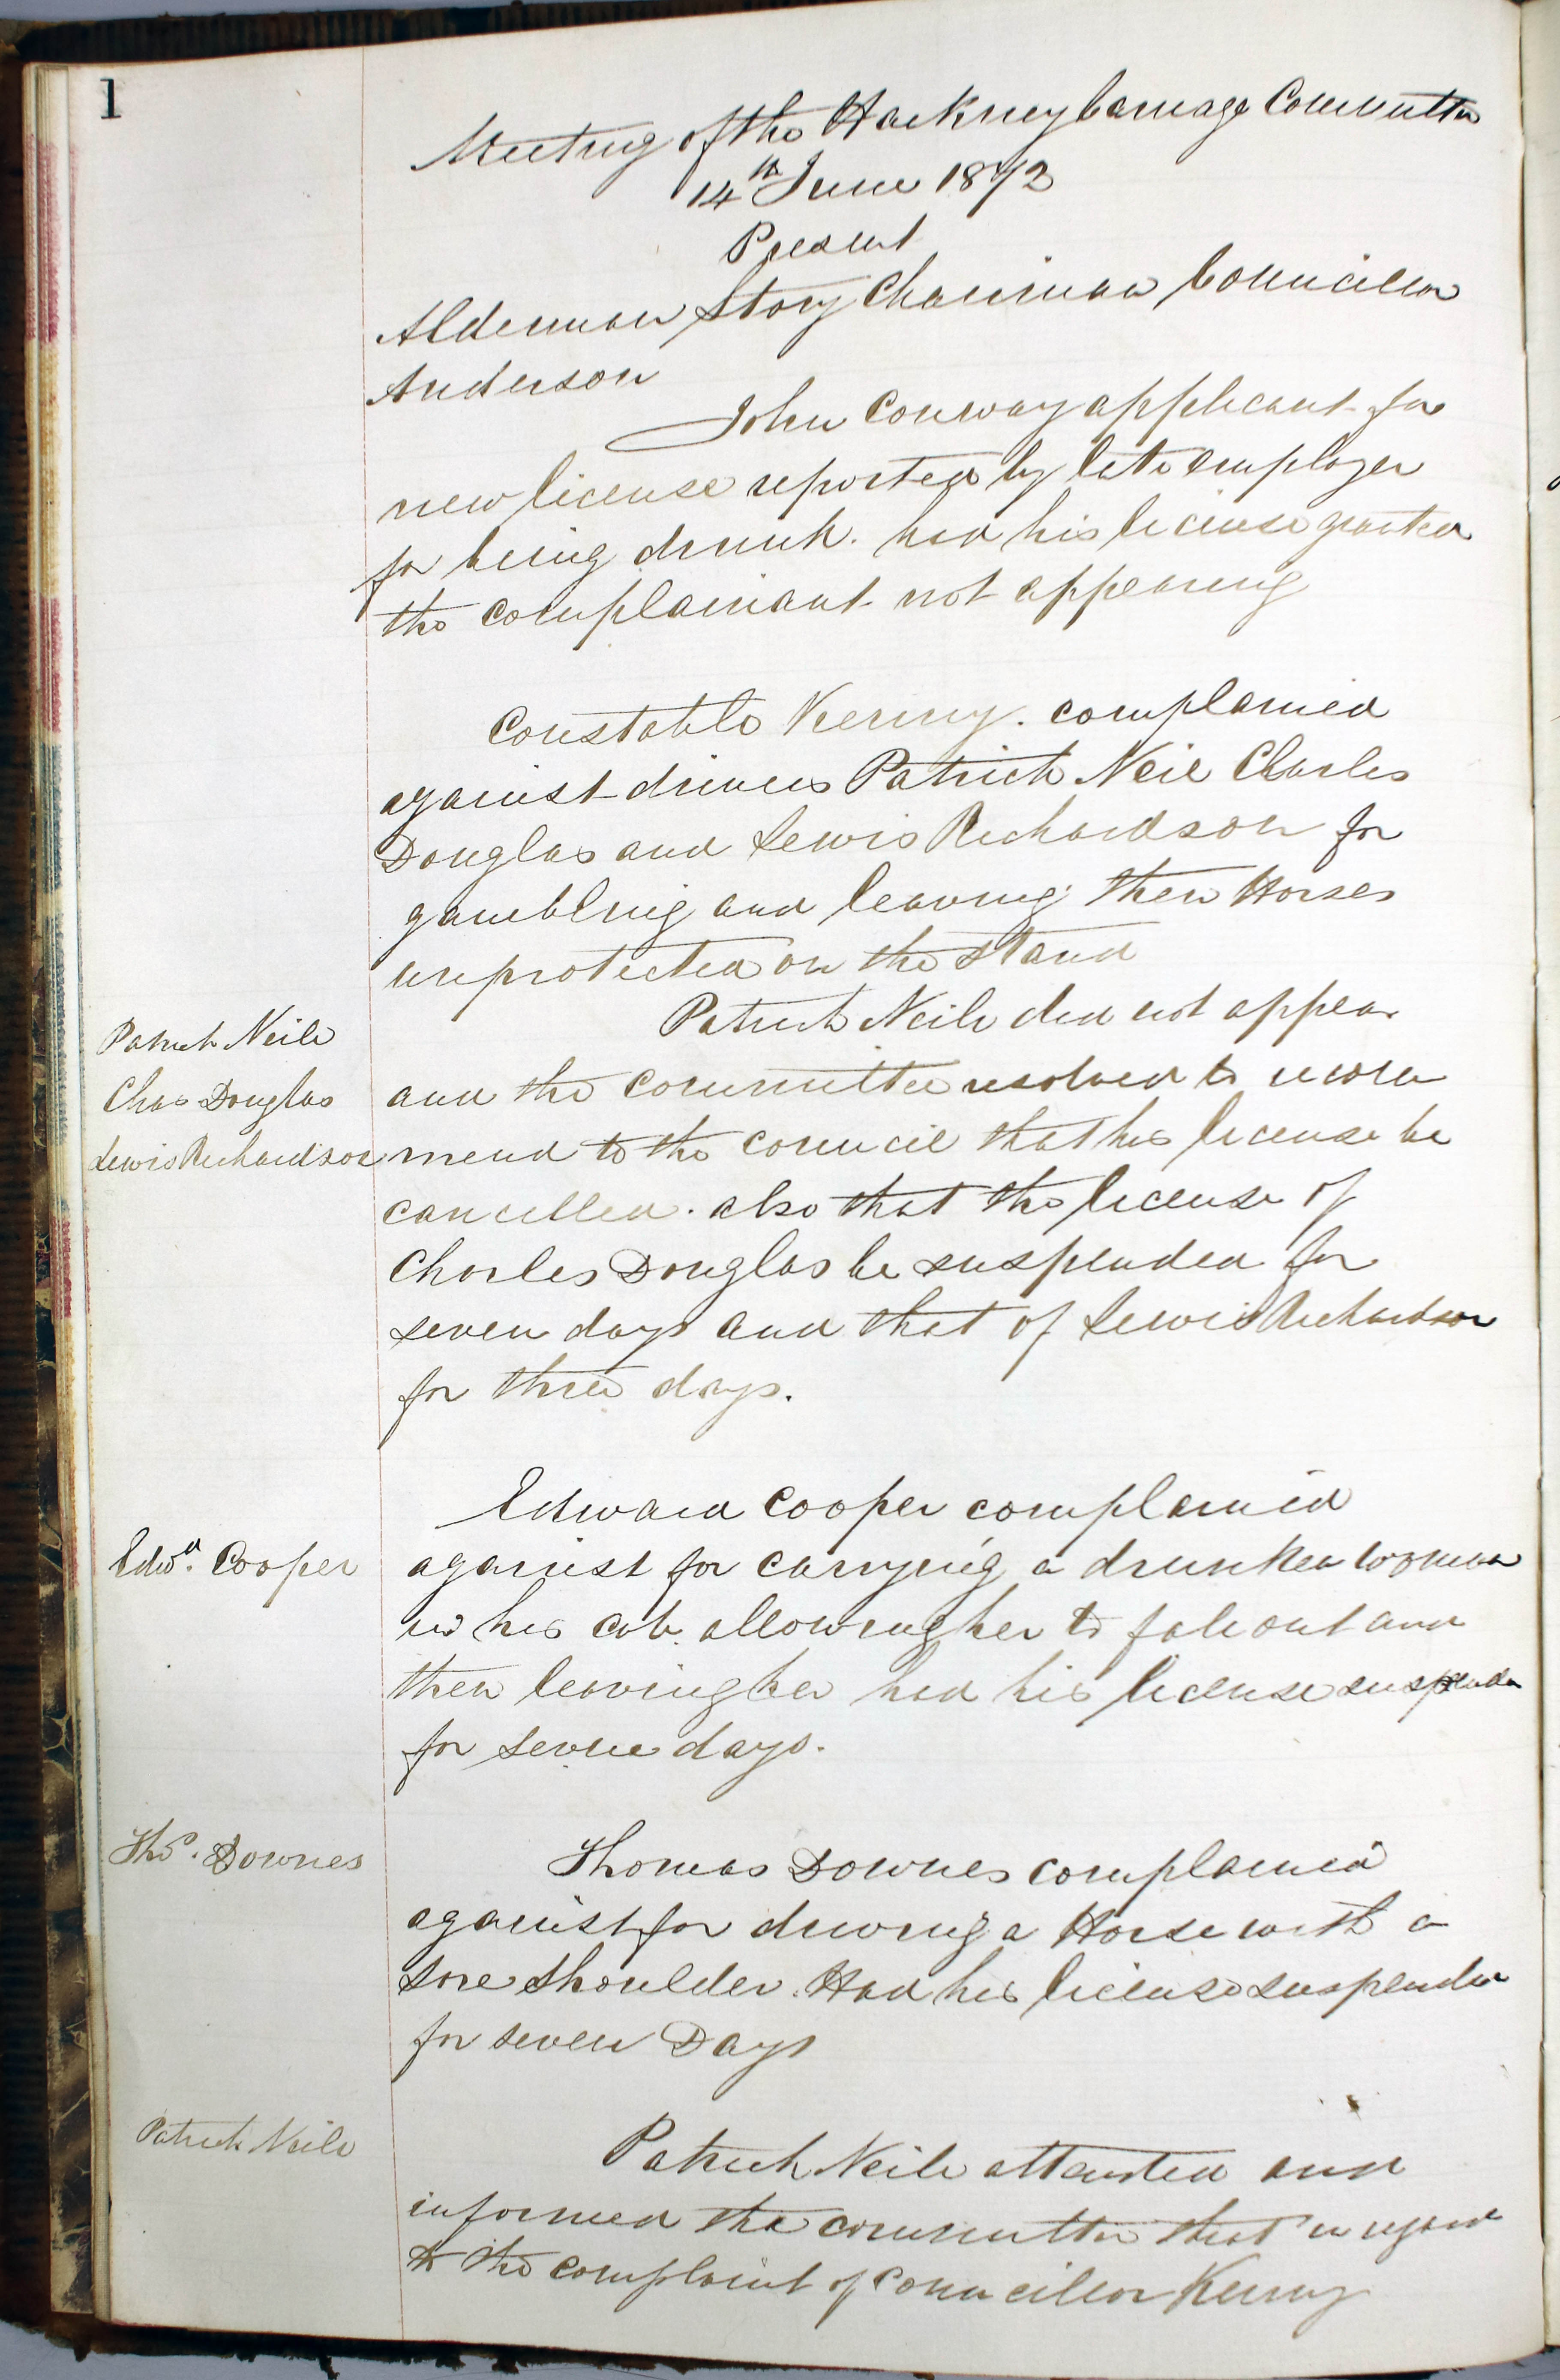 1
Meeting of the Hackney Carriage Committee
14th June 1872
Present
Alderman Story Chairman Councillor
Anderson
John Conway applicant for
new license reported by late employer
for being drunk. had his license granted
the complainant not appearing
Constable Kenny. complained
against drivers Patrick Neil Charles
Douglas and Lewis Richardson for
gambling and leaving their Horses
unprotected on the stand
Patrick Neile did not appear
Patrick Neile
Chas Douglas
and the committee resolved to recom
Lewis Richardson
mend to the council that his license be
cancelled. also that the license of
Charles Douglas be suspended for
seven days and that of Lewis Richardson
for three days.
Edward Cooper complained
Edwd. Cooper
against for carrying a drunken woman
in his cab allowing her to fall out and
then leaving her had his license suspended
for seven days.
Thos. Downes
Thomas Downes complained
against for driving a Horse with a
sore shoulder. Had his license suspended
for seven Days
Patrick Neile
Patrick Neile attended and
informed the committee that in regard
to the complaint of Councillor Kenny